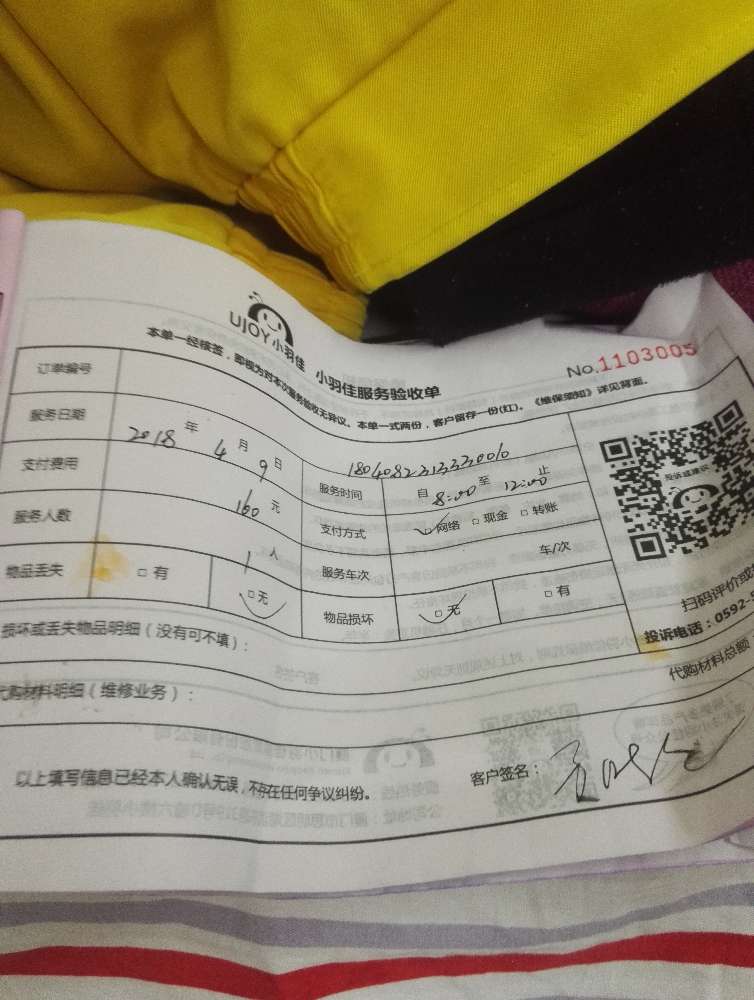 UJOY小羽佳 小羽佳服务验收单
No.1103005
本单一经核签，即视为对本次服务验收无异议。本单一式两份，客户留存一份(红)。《维保须知》详见背面。
订单编号
服务日期 2018 年 4 月 9 日 服务时间 自 8:00 至 12:00 止
支付费用 160 元 支付方式 网络 □ 现金 □ 转账
服务人数 1 人 服务车次 车/次
物品丢失 □ 有 □ 无 物品损坏 □ 无 □ 有
投诉或建议
扫码评价或
投诉电话：0592-5
损坏或丢失物品明细（没有可不填）：
代购材料明细（维修业务）：
代购材料总额
以上填写信息已经本人确认无误，不存在任何争议纠纷。
客户签名：